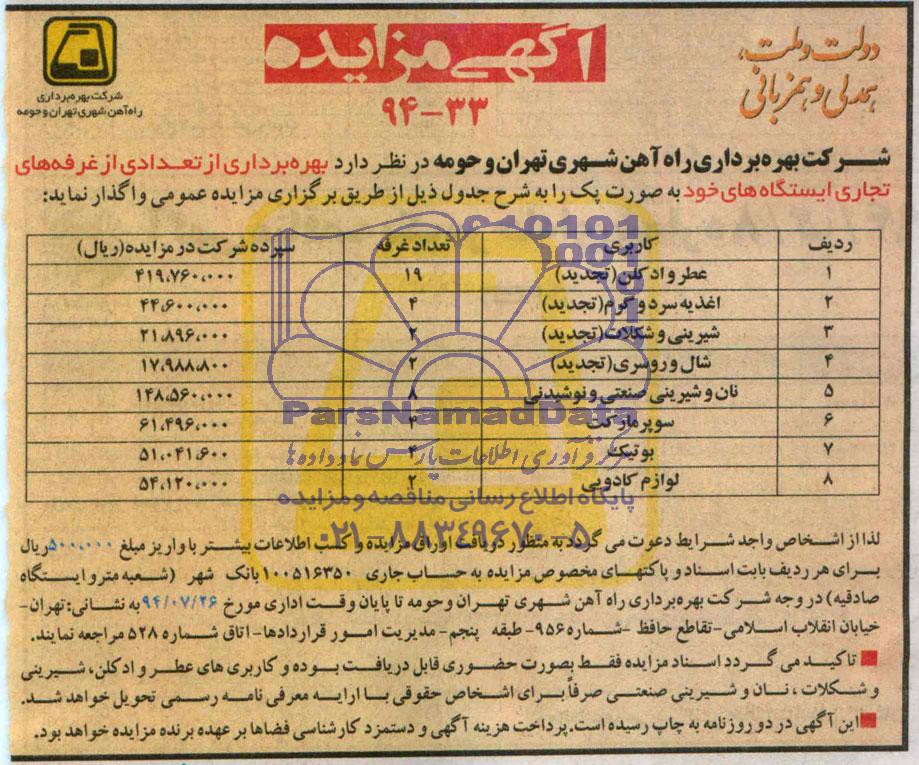 دولت و ملت،
همدلی و همزبانی
آگهی مزایده
۹۴-۳۳
شرکت بهره‌برداری
راه‌آهن شهری تهران و حومه
شرکت بهره‌برداری راه آهن شهری تهران و حومه در نظر دارد بهره‌برداری از تعدادی از غرفه‌های
تجاری ایستگاه‌های خود به صورت پک را به شرح جدول ذیل از طریق برگزاری مزایده عمومی واگذار نماید:
ردیف کاربری تعداد غرفه سپرده شرکت در مزایده(ریال)
۱ عطر و ادکلن(تجدید) ۱۹ ۴۱۹،۷۶۰،۰۰۰
۲ اغذیه سرد و گرم(تجدید) ۴ ۴۴،۶۰۰،۰۰۰
۳ شیرینی و شکلات(تجدید) ۲ ۲۱،۸۹۶،۰۰۰
۴ شال و روسری(تجدید) ۲ ۱۷،۹۸۸،۸۰۰
۵ نان و شیرینی صنعتی و نوشیدنی ۸ ۱۴۸،۵۶۰،۰۰۰
۶ سوپرمارکت ۴ ۶۱،۴۹۶،۰۰۰
۷ بوتیک ۴ ۵۱،۰۴۱،۶۰۰
۸ لوازم کادویی ۲ ۵۴،۱۲۰،۰۰۰
010101
0001
ParsNamadData
مرکز فرآوری اطلاعات پارس نماد داده‌ها
پایگاه اطلاع رسانی مناقصه و مزایده
۰۲۱-۸۸۳۴۹۶۷۰-۵
لذا از اشخاص واجد شرایط دعوت می گردد به منظور دریافت اوراق مزایده و کسب اطلاعات بیشتر با واریز مبلغ ۵۰۰،۰۰۰ ریال
برای هر ردیف بابت اسناد و پاکتهای مخصوص مزایده به حساب جاری ۱۰۰۵۱۶۳۵۰ بانک شهر (شعبه مترو ایستگاه
صادقیه) در وجه شرکت بهره‌برداری راه آهن شهری تهران و حومه تا پایان وقت اداری مورخ ۹۴/۰۷/۲۶ به نشانی: تهران-
خیابان انقلاب اسلامی-تقاطع حافظ -شماره ۹۵۶- طبقه پنجم- مدیریت امور قراردادها- اتاق شماره ۵۲۸ مراجعه نمایند.
تاکید می گردد اسناد مزایده فقط بصورت حضوری قابل دریافت بوده و کاربری های عطر و ادکلن، شیرینی
و شکلات ، نان و شیرینی صنعتی صرفاً برای اشخاص حقوقی با ارایه معرفی نامه رسمی تحویل خواهد شد.
این آگهی در دو روزنامه به چاپ رسیده است. پرداخت هزینه آگهی و دستمزد کارشناسی فضاها بر عهده برنده مزایده خواهد بود.